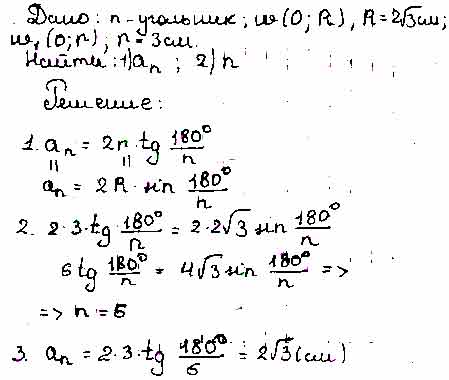 Дано: n-угольник; w(O; R), R=2√3см;
w₁(O; r); r = 3см.
Найти: 1) aₙ; 2) n
Решение:
1. aₙ = 2r · tg 180°/n
॥ ॥
aₙ = 2R · sin 180°/n
2. 2·3·tg 180°/n = 2·2√3 sin 180°/n
6 tg 180°/n = 4√3 sin 180°/n =>
=> n = 6
3. aₙ = 2·3·tg 180°/6 = 2√3 (см)